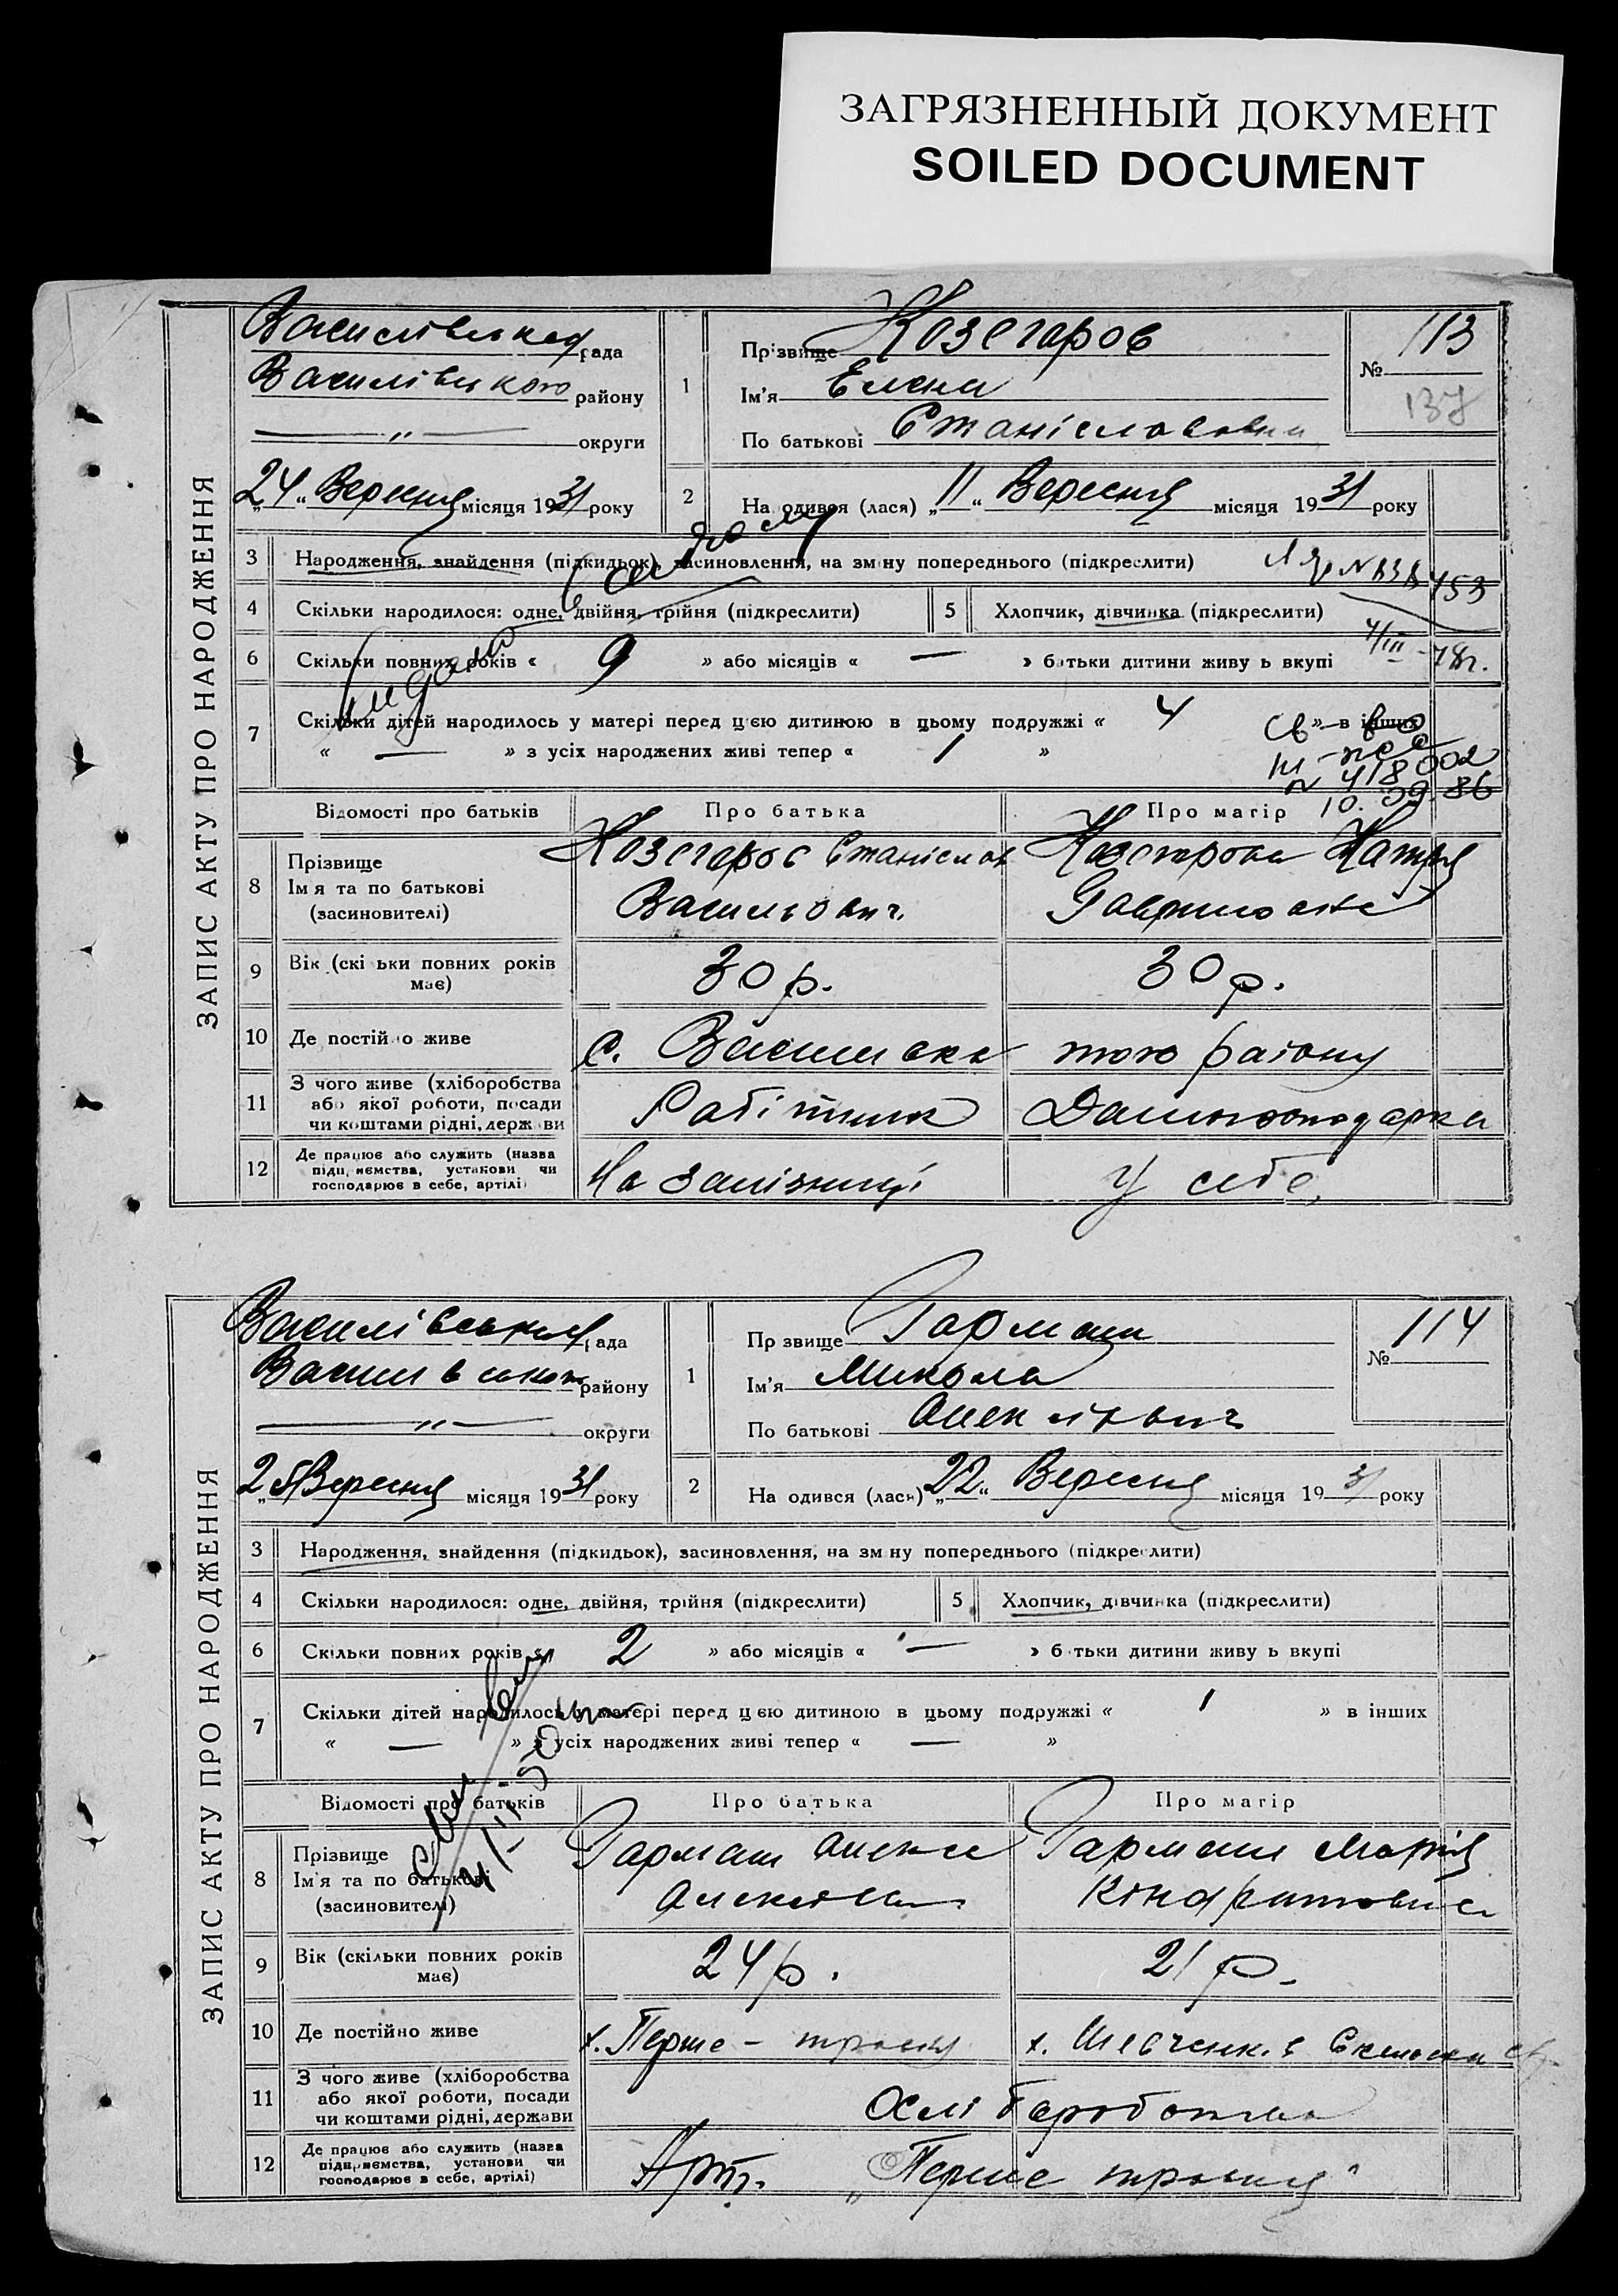 ЗАГРЯЗНЕННЫЙ ДОКУМЕНТ
SOILED DOCUMENT
ЗАПИС АКТУ ПРО НАРОДЖЕННЯ
Василівська рада
Василівського району
—„— округи
„24“ Вересня місяця 1931 року
1 Прізвище Козегаров
Ім'я Елена
По батькові Станіславовна
№ 113
137
2 На одився (лася) „11“ Вересня місяця 1931 року
3 Народження, знайдення (підкидьок), засиновлення, на зм ну попереднього (підкреслити)
4 Скільки народилося: одне, двійня, трійня (підкреслити)
5 Хлопчик, дівчинка (підкреслити)
4/III-78г.
6 Скільки повних років « 9 » або місяців « — » батьки дитини живу ь вкупі
7 Скільки дітей народилось у матері перед цією дитиною в цьому подружжі « 4 » в інших
« — » з усіх народжених живі тепер « 1 »
св-во
III-
№ 418002
10. 09. 86
Відомості про батьків Про батька Про матір
8 Прізвище
Ім я та по батькові
(засиновителі)
Козегаров Станіслав
Васильович.
Козегарова Катря
Гавриловна
9 Вік (скі ьки повних років
має)
30 р. 30 р.
10 Де постійно живе с. Василівка того району
11 З чого живе (хліборобства
або якої роботи, посади
чи коштами рідні, держ ви
Робітник Домогосподарка
12 Де працює або служить (назва
підприємства, установи чи
господарює в себе, артілі)
На залізниці У себе,
ЗАПИС АКТУ ПРО НАРОДЖЕННЯ
Василівська рада
Василівського району
—„— округи
„25 Вересня місяця 1931 року
1 Пр звище Гармаш
Ім'я Микола
По батькові Олексієвич
№ 114
2 На одився (лася) „22“ Вересня місяця 1931 року
3 Народження, знайдення (підкидьок), засиновлення, на зм ну попереднього (підкреслити)
4 Скільки народилося: одне, двійня, трійня (підкреслити)
5 Хлопчик, дівчинка (підкреслити)
6 Скільки повних років « 2 » або місяців « — » б тьки дитини живу ь вкупі
7 Скільки дітей народилось у матері перед цією дитиною в цьому подружжі « 1 » в інших
« — » з усіх народжених живі тепер « — »
Відомості про батьків Про батька Про матір
8 Прізвище
Ім'я та по батькові
(засиновителі)
Гармаш Олексій
Гармаш Марія
Кондратовна
9 Вік (скільки повних років
має)
24 р. 21 р.
10 Де постійно живе х. Перше-травня х. Шевченк.
11 З чого живе (хліборобства
або якої роботи, посади
чи коштами рідні, держави
Хліборобство
12 Де працює або служить (назва
підприємства, установи чи
господарює в себе, артілі)
Арт. „Перше травня"